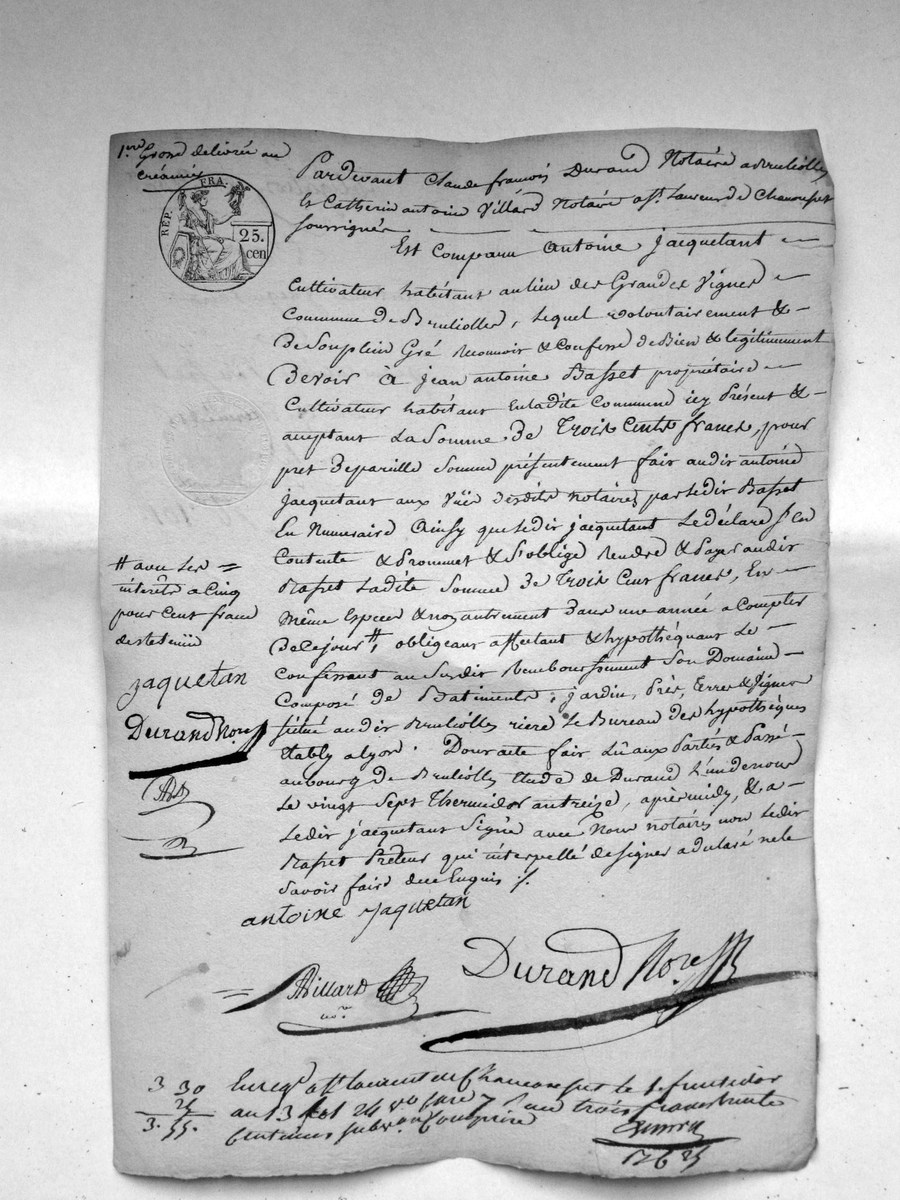 1re Grosse délivrée au
créancier
RÉP. FRA.
25.
cen
Pardevant Claude françois Durand Notaire a Brulliolles
& Catherin antoine Villard Notaire a St. Laurent de Chamousset
soussignés
Est Comparu antoine jacquetant
Cultivateur habitant au lieu des Grandes Vignes
Commune de Brulliolles, lequel volontairement &
De Son plein Gré Reconnoit & Confesse De Bien & légitimement
Devoir à jean antoine Basset propriétaire
Cultivateur habitant En ladite Commune icy Présent &
acceptant La Somme De Trois Cents francs, pour
pret De pareille Somme présentement fait audit antoine
jacquetant aux Vües desdits notaires par ledit Basset
En Numeraire Ainsy que ledit jacquetant Le déclare s'en
Contente & Prommet & S'oblige Rendre & Payer audit
Basset Ladite Somme De Trois Cent francs, En
Même Espece & non autrement dans une année a Compter
De ce jour #, obligeant affectant & hypothéquant Le
Confessant au Susdit Remboursement Son Domaine
Composé De Batiments, jardin, Près, terres & Vignes
Situé audit Brulliolles riere Le Bureau des hypothèques
Etably a lyon. Dont acte fait Lû aux Parties & Passé
au bourg de Brulliolles Etude de Durand L'un de nous
Le vingt Sept Thermidor an treize, après midy, & a
Ledit jacquetant Signé avec Nous notaires non Ledit
Basset Preteur qui interpellé de signer a declaré ne le
Savoir faire de ce Enquis ./.
# avec Les
intérêts a Cinq
pour Cent franc
de retenüe
jaquetan
Durand Nore
antoine jaquetan
AVillard
nore
Durand Nore
3 30
Enregé a St laurent de Chamousset le 1. fructidor
33
an 13 fol 24 vo case 7 Reçu trois francs trente
3.
Centimes subvon Comprise